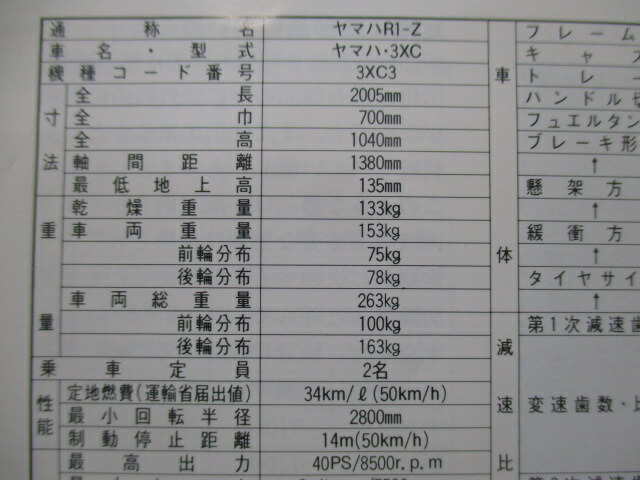 通称名 ヤマハR1-Z フレーム
車名・型式 ヤマハ・3XC キャス
機種コード番号 3XC3 車 トレー
寸法 全長 2005mm ハンドル切
全巾 700mm フュエルタン
全高 1040mm ブレーキ形
軸間距離 1380mm ↑
最低地上高 135mm 懸架方
重量 乾燥重量 133kg ↑
車両重量 153kg 緩衝方
前輪分布 75kg 体 ↑
後輪分布 78kg タイヤサイ
車両総重量 263kg ↑
前輪分布 100kg 第1次減速歯
後輪分布 163kg 減
乗車定員 2名
性能 定地燃費(運輸省届出値) 34km/ℓ(50km/h) 速 変速歯数・比
最小回転半径 2800mm
制動停止距離 14m(50km/h)
最高出力 40PS/8500r.p.m 比